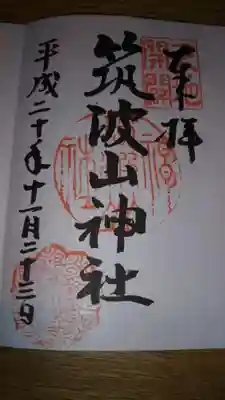 奉拝
筑波山神社
平成二十年十一月二十三日